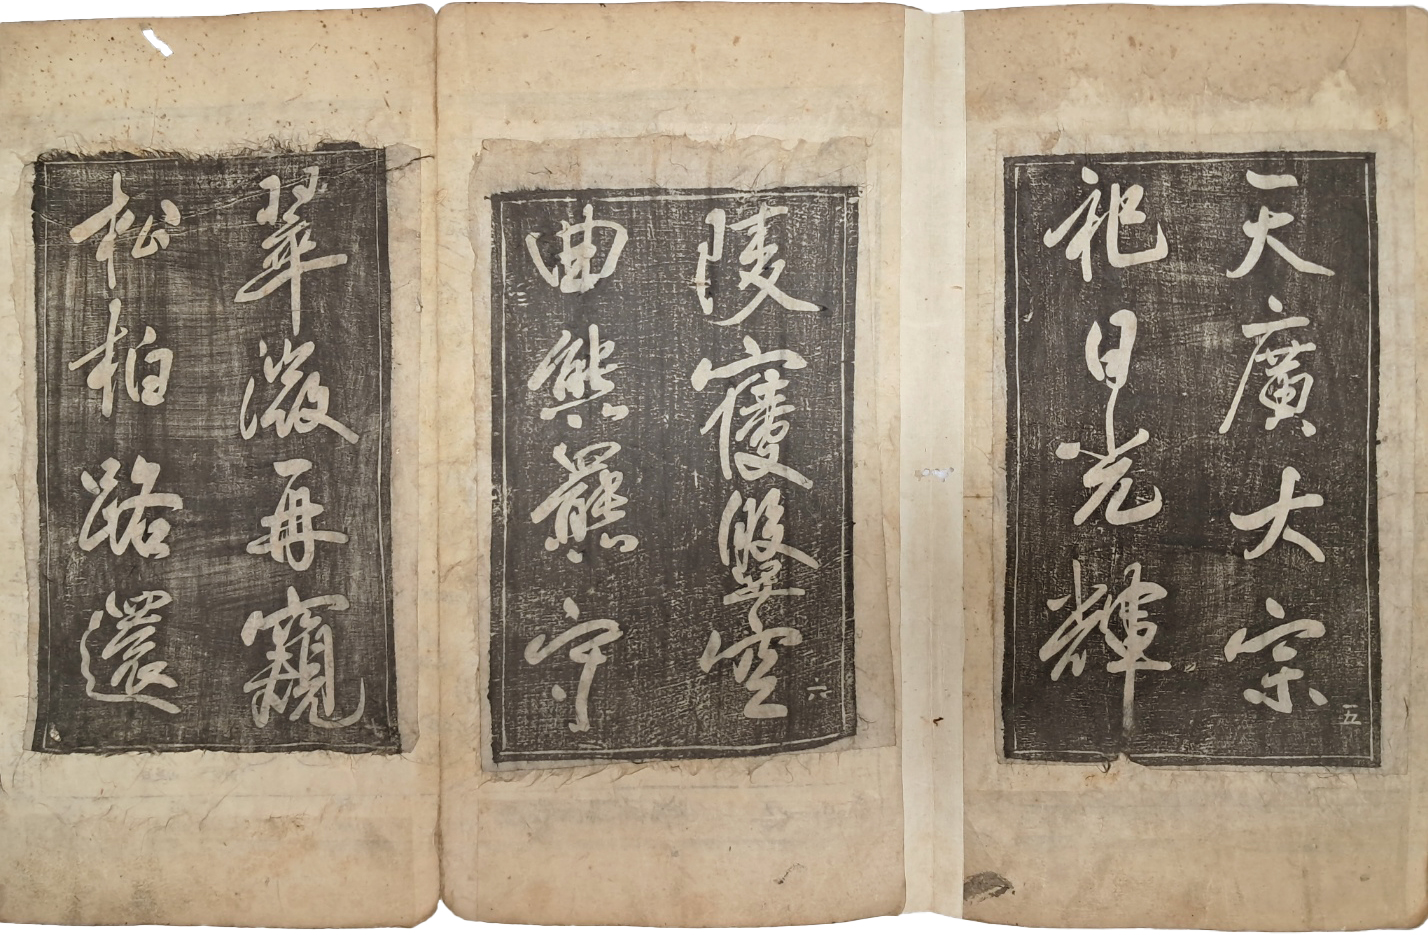 天廣大宗
五
祀日光輝
陵寢盤空
六
曲熊羆守
翠微再窺
松柏路還